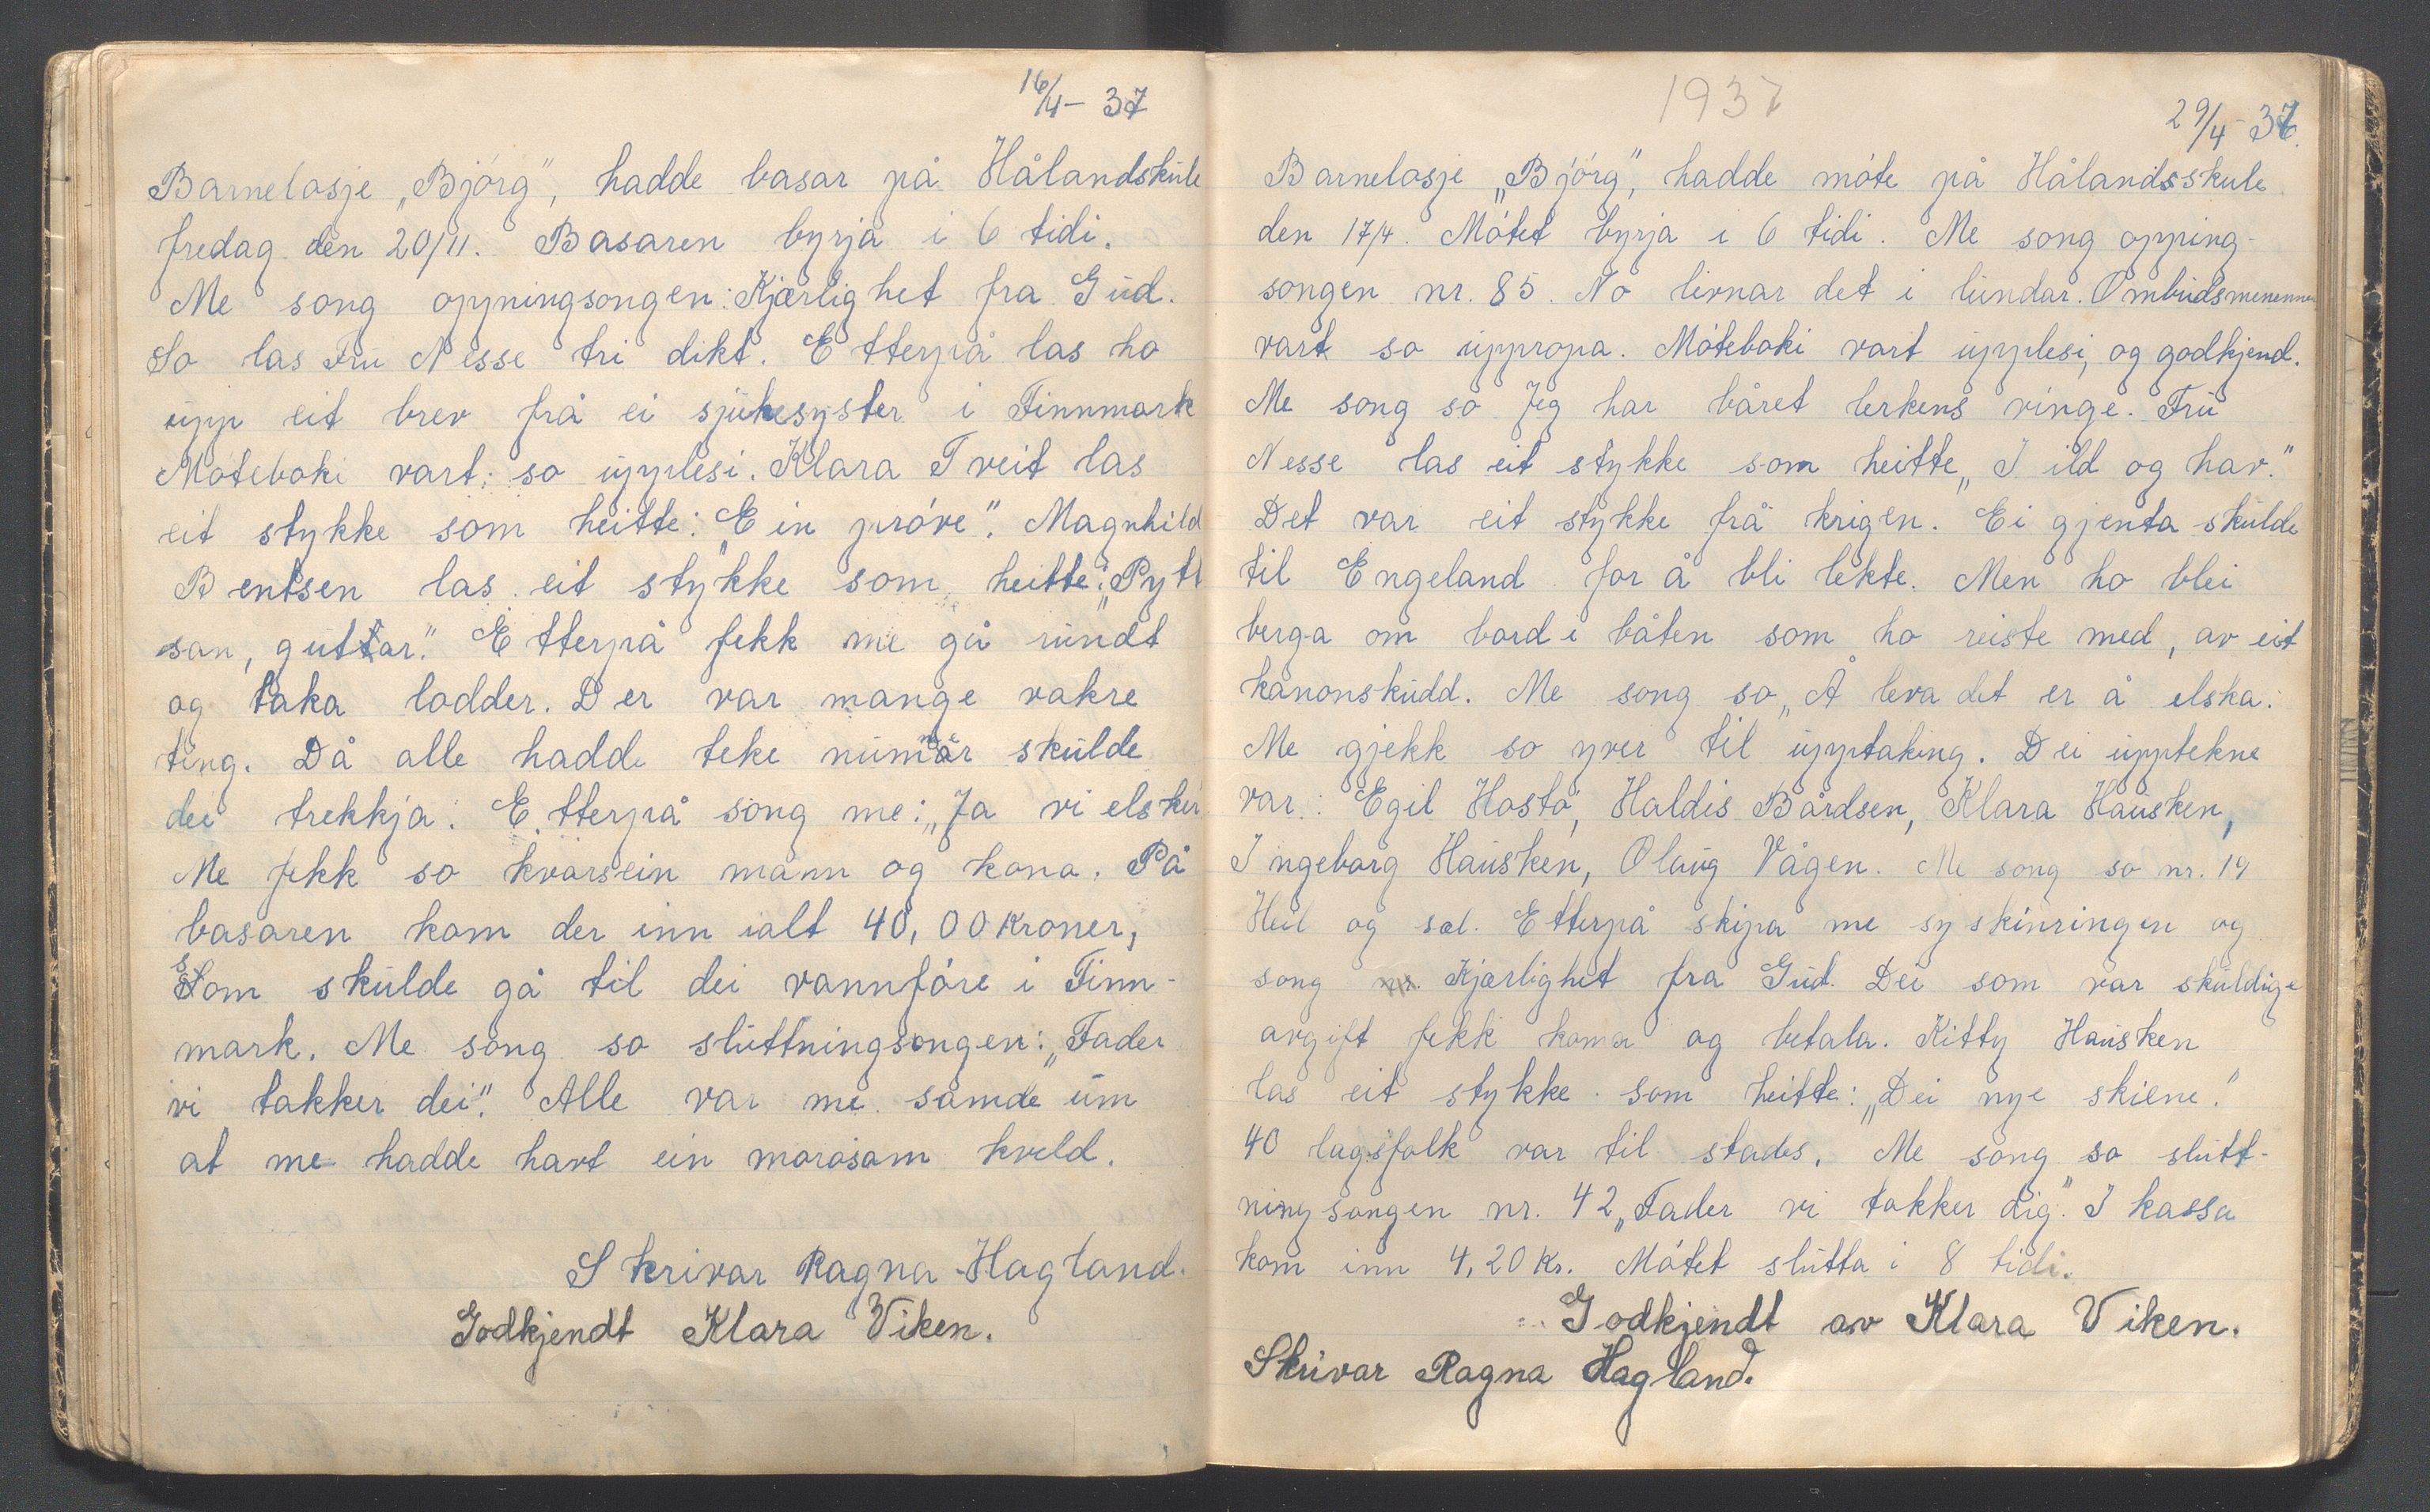 16/4- 37
Barnelosje „Bjórg", hadde basar på Hålandskule
fredag den 20/11. Basaren byrja i 6 tidi.
Me song oppningsongen: Kjærlighet fra Gud.
So las Fru Nesse tri dikt. Etterpå las ho
upp eit brev frå ei sjukesyster i Finnmark
Móteboki vart so upplesi. Klara Tveit las
eit stykke som heitte: „Ein próve". Magnhild
Bentsen las eit stykke som heitte: „Pytt
san, guttar." Etterpå fekk me gå rundt
og taka lodder. Der var mange vakre
ting. Då alle hadde teke numer skulde
dei trekkja. Etterpå song me: „Ja vi elsker
Me fekk so kvarsein mann og kona. På
basaren kom der inn ialt 40,00 kroner,
som skulde gå til dei vannfóre i Finn-
mark. Me song so sluttningsongen: „Fader
vi takker dei". Alle var me samde um
at me hadde havt ein morosam kveld.
Skrivar Ragna Hagland.
Godkjendt Klara Viken.
1937
29/4-37.
Barnelosje „Bjórg", hadde móte på Hålandsskule
den 17/4. Mótet byrja i 6 tidi. Me song opping-
songen nr. 85. No livnar det i lundar. Ombudsmennene
vart so uppropa. Móteboki vart upplesi, og godkjend.
Me song so Jeg har båret lerkens vinge. Fru
Nesse las eit stykke som heitte „I ild og hav."
Det var eit stykke frå krigen. Ei gjenta skulde
til Engeland for å bli lekte. Men ho blei
berga om bord i båten som ho reiste med, av eit
kanonskudd. Me song so „Å leva det er å elska.
Me gjekk so yver til upptaking. Dei upptekne
var: Egil Hostó, Haldis Bårdsen, Klara Hausken,
Ingeborg Hausken, Olaug Vågen. Me song so nr. 19
Heil og sæl. Etterpå skipa me syskinringen og
song nr. Kjærlighet fra Gud. Dei som var skuldige
avgift fekk koma og betala. Kitty Hausken
las eit stykke som heitte: „Dei nye skiene."
40 lagsfolk var til stades. Me song so slutt-
ningsongen nr. 42 „Fader vi takker dig". I kassa
kom inn 4,20 Kr. Mótet slutta i 8 tidi.
Godkjendt av Klara Viken.
Skrivar Ragna Hagland.